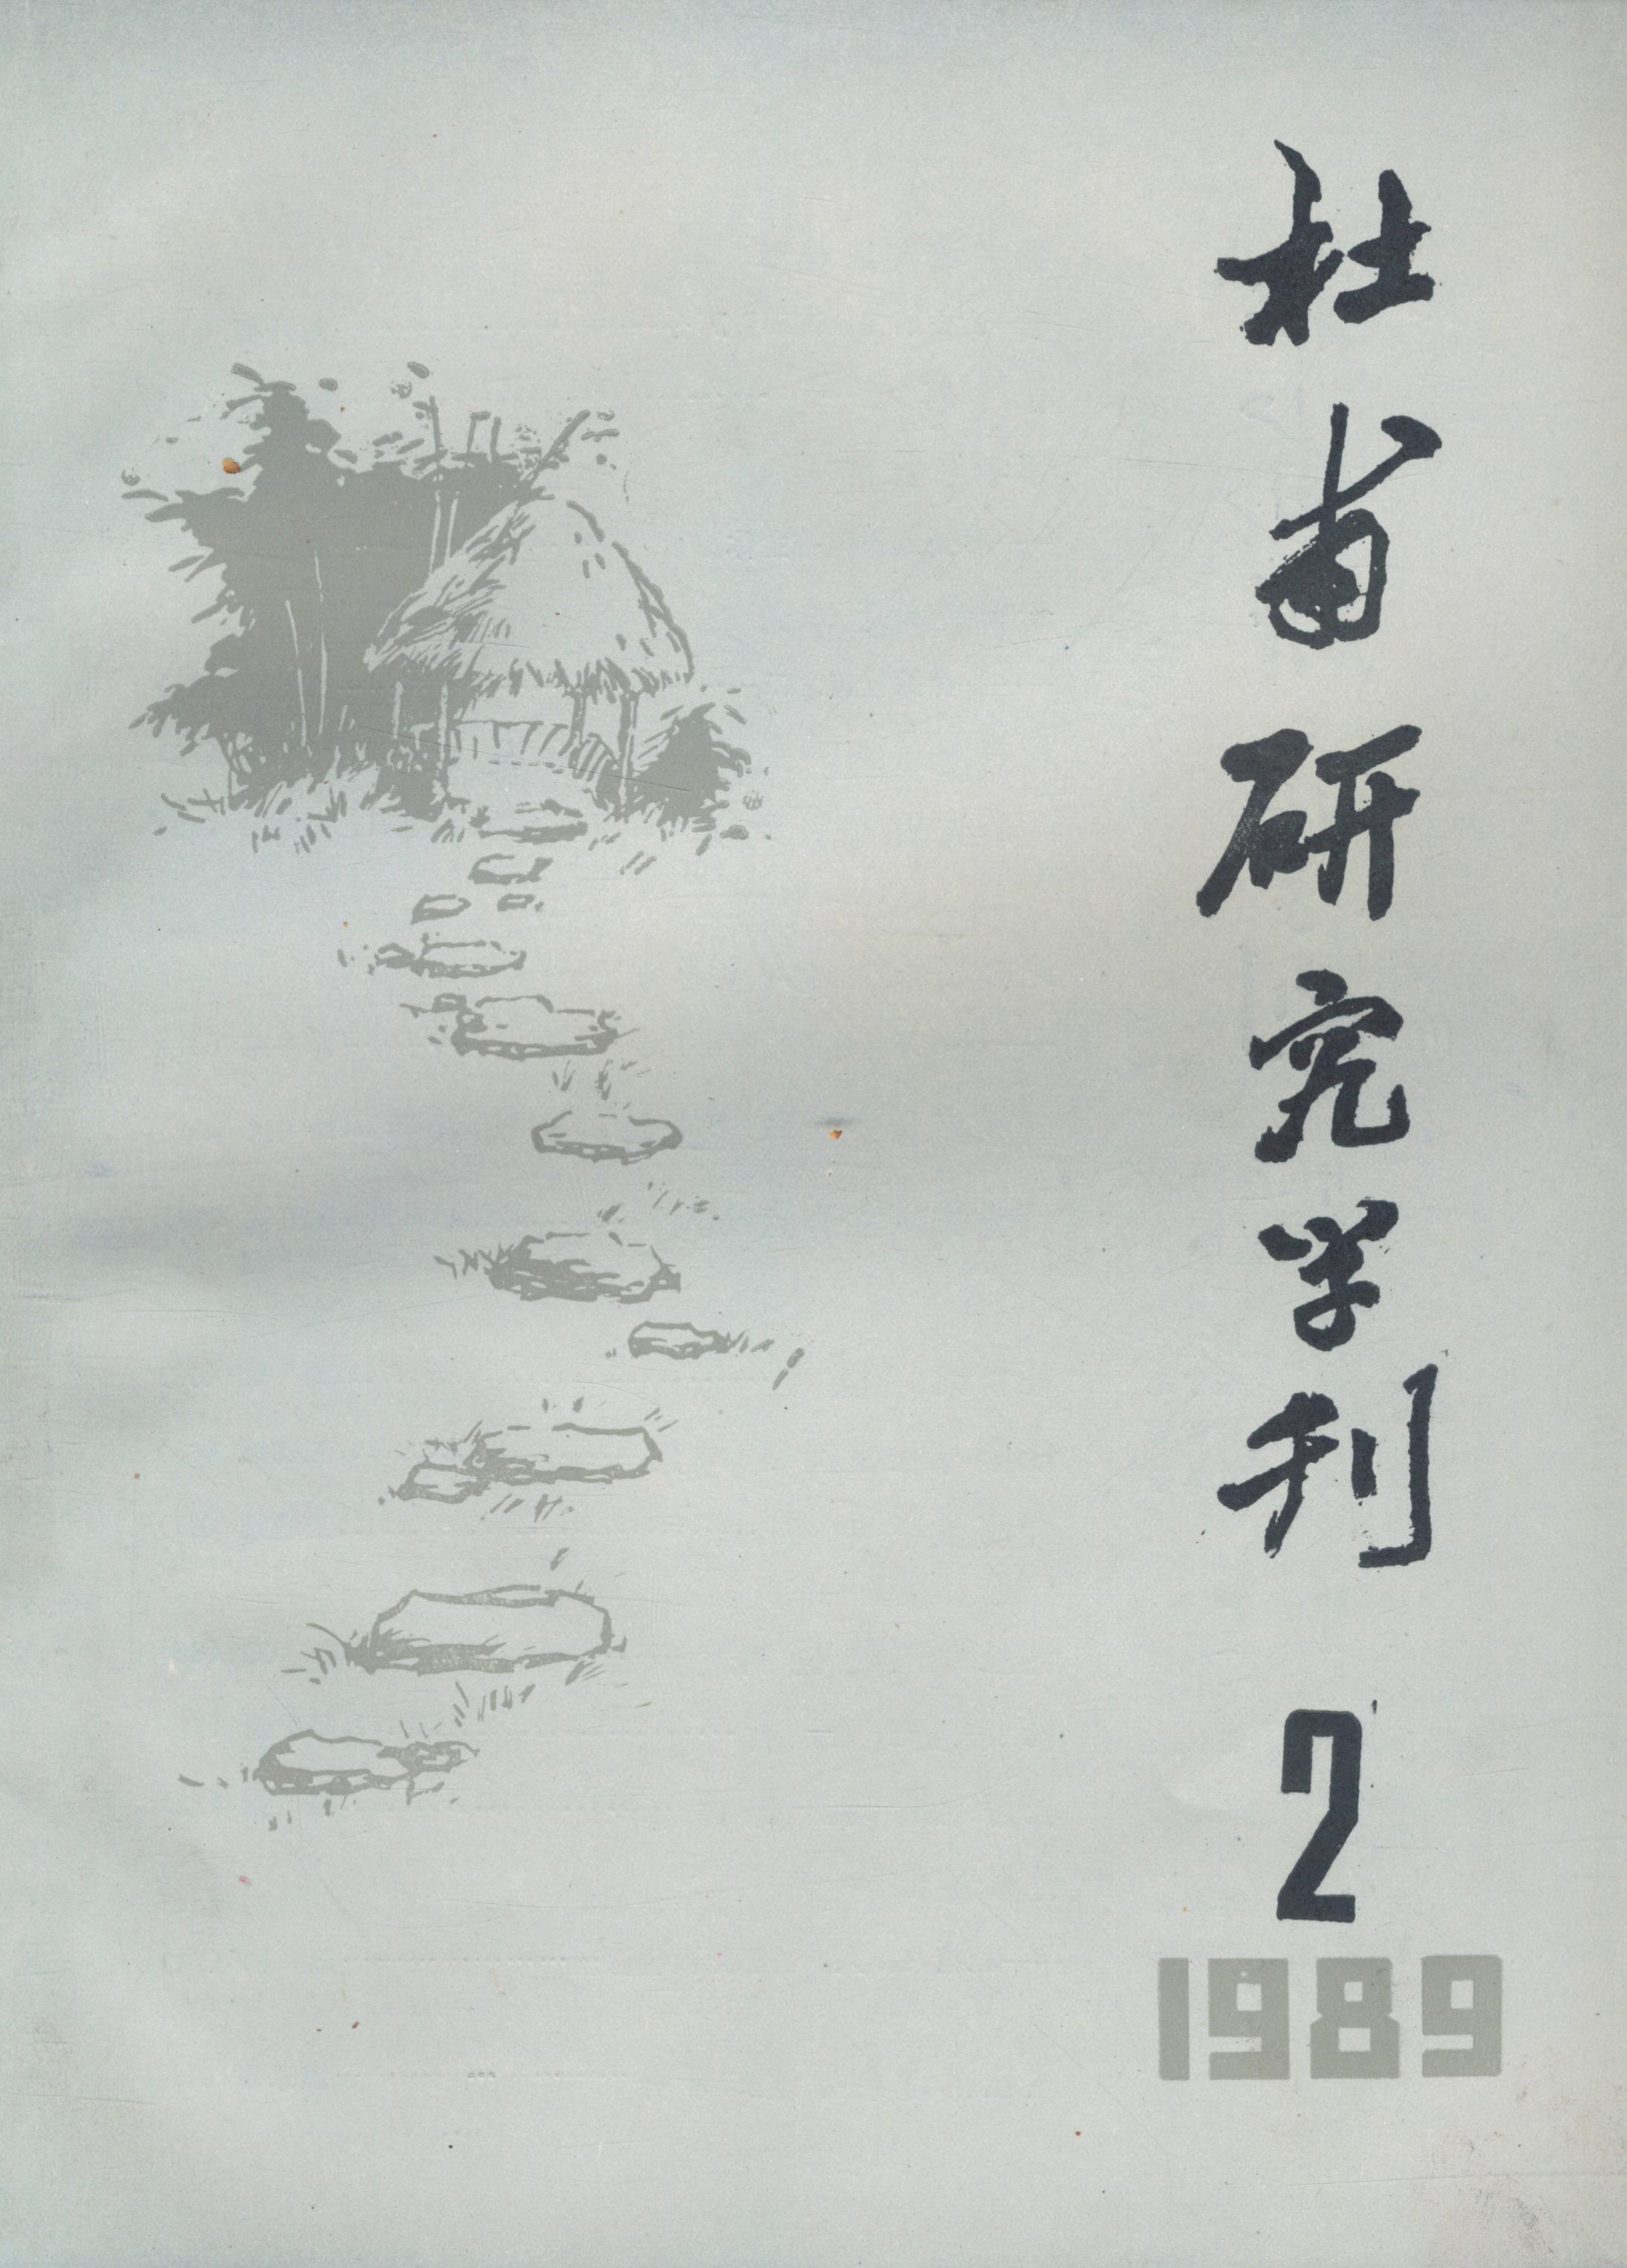 杜甫研究学刊
2
1989